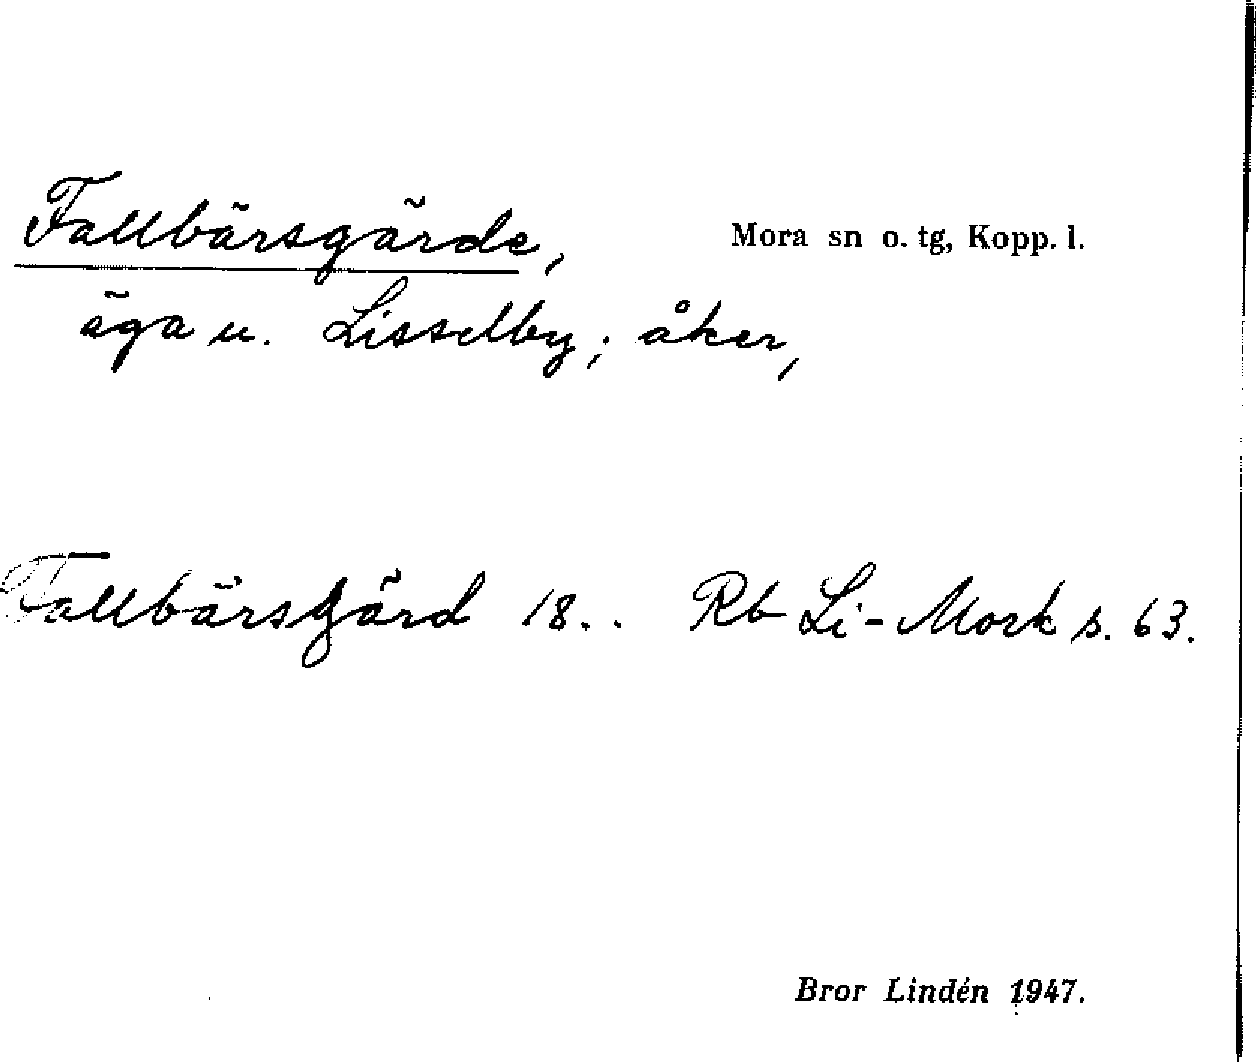 Fallbärsgärde, Mora sn o. tg, Kopp. l.
äga u. Lisselby; åker,
Fallbärsgärd 18.. Rb Li-Mork s. 63.
Bror Lindén 1947.